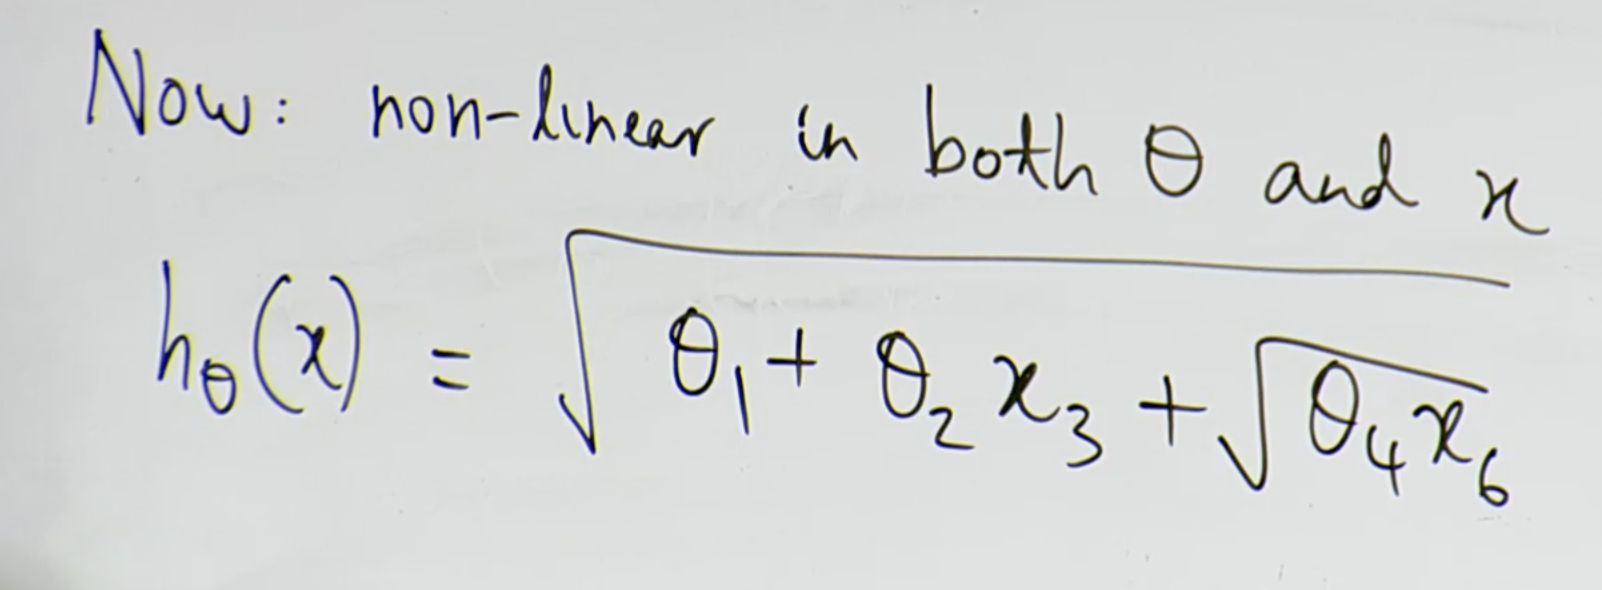 Now: non-linear in both θ and x
h_θ(x) = √(θ₁ + θ₂ x₃ + √(θ₄x₆))